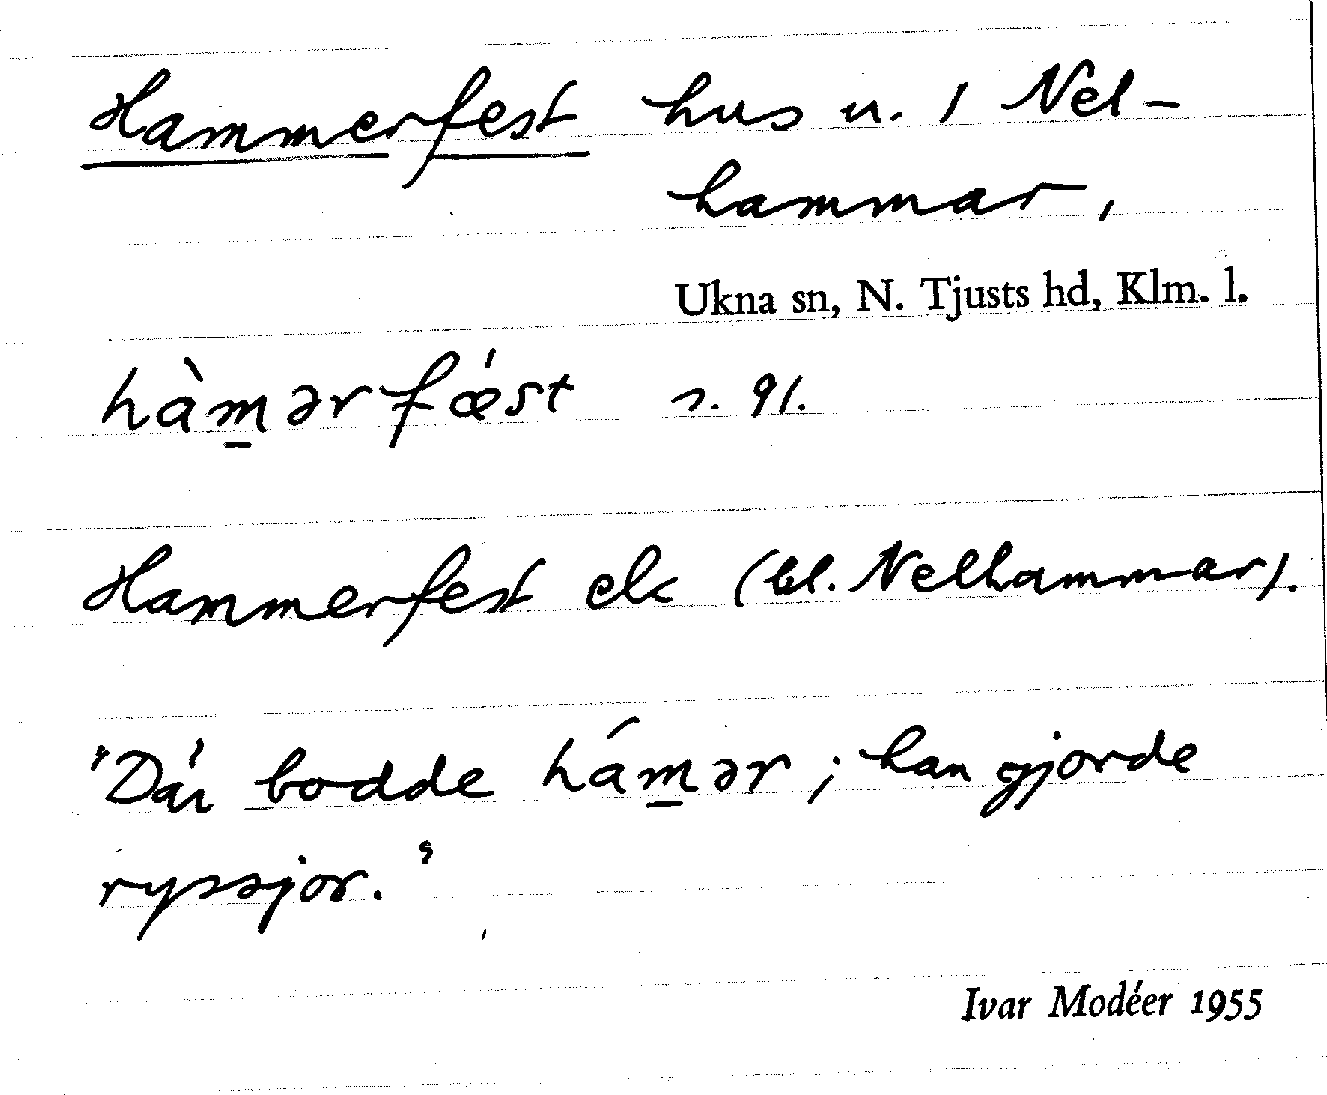 Hammerfest hus u. / Nel-
hammar,
Ukna sn, N. Tjusts hd, Klm. l.
hàm̲ərfǽst s. 91.
Hammerfest ek (bl. Nelhammar).
"Där bodde hám̲ər; han gjorde
ryssjor."
Ivar Modéer 1955